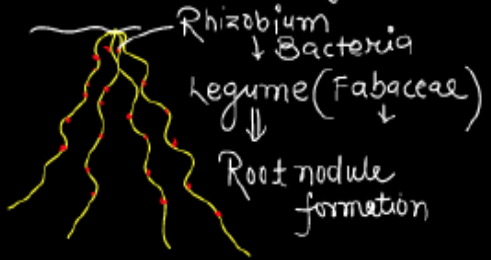 Rhizobium
↓ Bacteria
Legume (Fabaceae)
⇓ ↓
Root nodule
formation